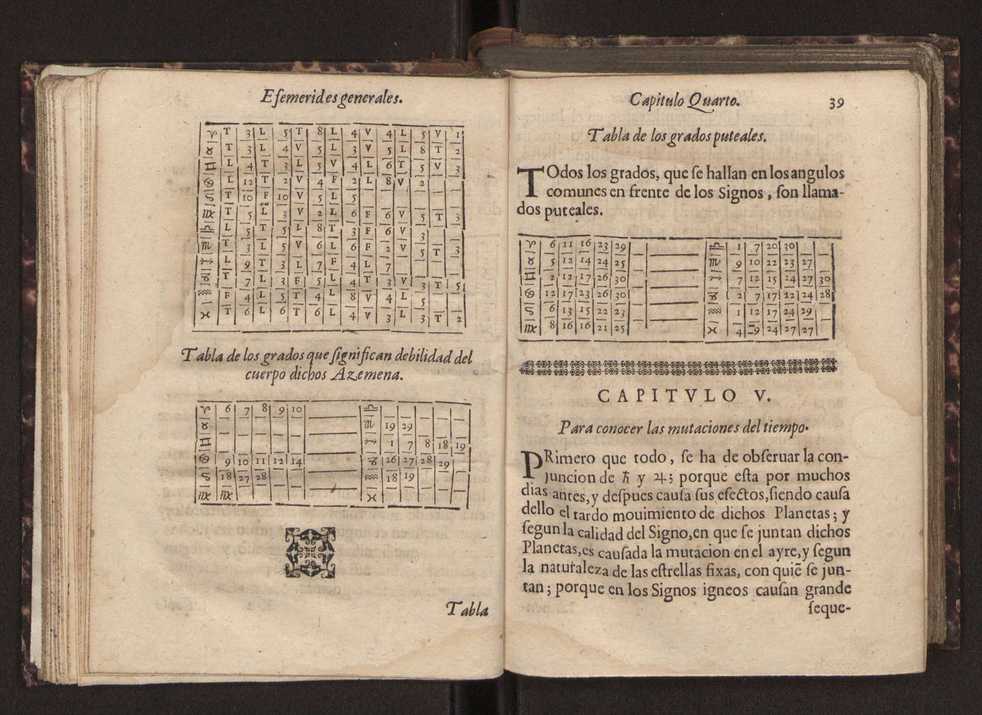 Efemerides generales.
♈ T 3 L 5 T 8 L 4 V 4 L 5 V 1
♉ T 3 L 4 V 5 L 3 V 5 L 8 T 2
♊ L 4 T 3 L 5 V 4 L 6 T 5 V 3
♋ L 12 T 2 V 4 F 2 L 8 V 2
♌ T 10 F 10 V 5 L 5
♍ T 5 L 3 V 2 L 6 F 6 V 5 T 3
♎ T 5 L 5 L 8 T 3 F 6 V 3
♏ T 3 L 5 V 6 L 6 F 2 V 5 T 3
♐ L 9 T 3 L 7 F 4 L 7
♑ T 7 L 3 F 5 L 4 T 3 V 3 T 5
♒ F 4 L 5 T 4 L 8 V 4 L 5
♓ T 6 L 6 T 6 L 4 V 3 L 3 T 2
Tabla de los grados que ſignifican debilidad del
cuerpo dichos Azemena.
♈ 6 7 8 9 10 ♎
♉ ♏ 19 29
♊ ♐ 1 7 8 18 19
♋ 9 10 11 12 14 ♑ 26 27 28 29
♌ 18 27 28 ♒ 18 19
♍ ♍ ♓
Tabla
Capitulo Quarto. 39
Tabla de los grados puteales.
TOdos los grados, que ſe hallan en los angulos
comunes en frente de los Signos, ſon llama-
dos puteales.
♈ 6 11 16 23 29 ♎ 1 7 20 30
♉ 5 12 14 24 25 ♏ 9 10 22 23 27
♊ 2 12 17 26 30 ♐ 7 12 15 24 27 30
♋ 12 17 23 26 30 ♑ 2 7 17 22 24 28
♌ 6 13 15 22 23 ♒ 1 12 17 24 29
♍ 8 16 16 21 25 ♓ 4 9 24 27 27
CAPITVLO V.
Para conocer las mutaciones del tiempo.
PRimero que todo, ſe ha de obſeruar la con-
juncion de ♄ y ♃; porque eſta por muchos
dias antes, y deſpues cauſa ſus efectos, ſiendo cauſa
dello el tardo mouimiento de dichos Planetas; y
ſegun la calidad del Signo, en que ſe juntan dichos
Planetas, es cauſada la mutacion en el ayre, y ſegun
la naturaleza de las eſtrellas fixas, con quiē ſe jun-
tan; porque en los Signos igneos cauſan grande
ſeque-